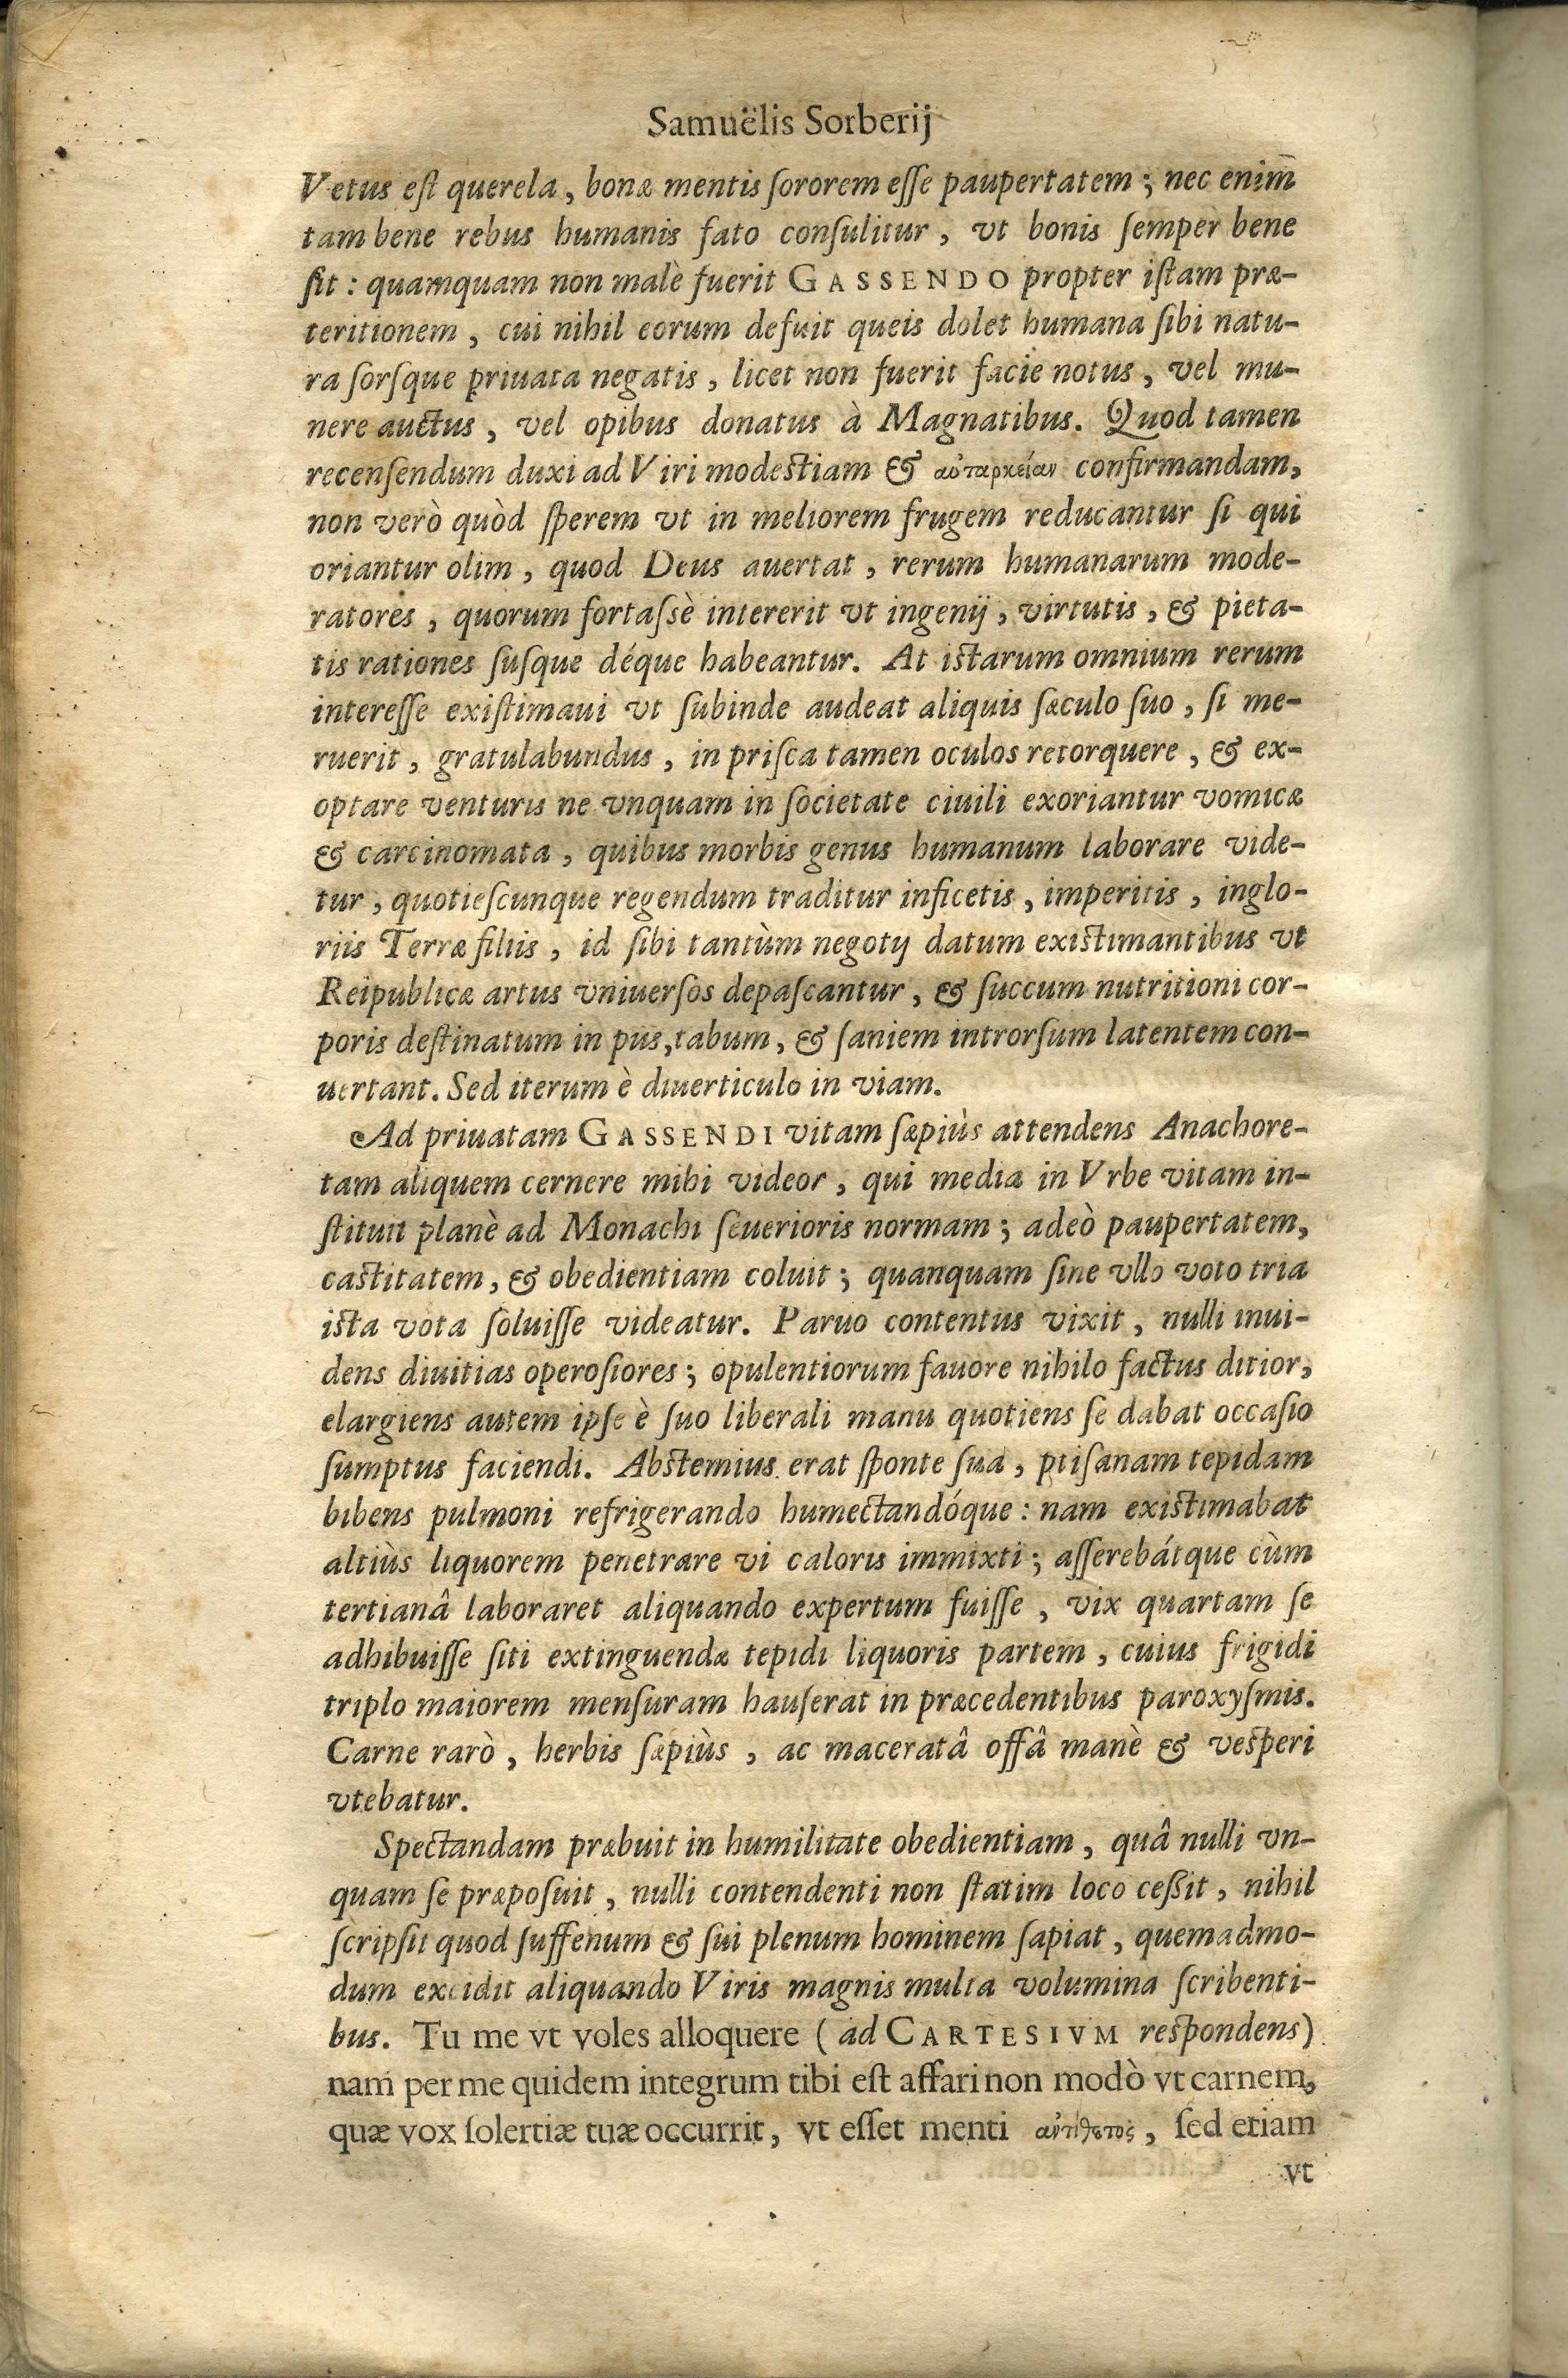 Samuëlis Sorberij
Vetus eſt querela, bonæ mentis ſororem eſſe paupertatem; nec enim̄
tam bene rebus humanis fato conſulitur, vt bonis ſemper bene
ſit: quamquam non malè fuerit GASSENDO propter iſtam præ-
teritionem, cui nihil eorum defuit queis dolet humana ſibi natu-
ra ſorſque priuata negatis, licet non fuerit facie notus, vel mu-
nere auctus, vel opibus donatus à Magnatibus. Quod tamen
recenſendum duxi ad Viri modeſtiam & αὐταρκείαν confirmandam,
non verò quòd ſperem vt in meliorem frugem reducantur ſi qui
oriantur olim, quod Deus auertat, rerum humanarum mode-
ratores, quorum fortaſsè intererit vt ingenij, virtutis, & pieta-
tis rationes ſuſque déque habeantur. At iſtarum omnium rerum
intereſſe exiſtimaui vt ſubinde audeat aliquis ſæculo ſuo, ſi me-
ruerit, gratulabundus, in priſca tamen oculos retorquere, & ex-
optare venturis ne vnquam in ſocietate ciuili exoriantur vomicæ
& carcinomata, quibus morbis genus humanum laborare vide-
tur, quotieſcunque regendum traditur inficetis, imperitis, inglo-
riis Terræ filiis, id ſibi tantùm negotij datum exiſtimantibus vt
Reipublicæ artus vniuerſos depaſcantur, & ſuccum nutritioni cor-
poris deſtinatum in pus, tabum, & ſaniem introrſum latentem con-
uertant. Sed iterum è diuerticulo in viam.
Ad priuatam GASSENDI vitam ſæpiùs attendens Anachore-
tam aliquem cernere mihi videor, qui media in Vrbe vitam in-
ſtituit planè ad Monachi ſeuerioris normam; adeò paupertatem,
caſtitatem, & obedientiam coluit; quanquam ſine vllo voto tria
iſta vota ſoluiſſe videatur. Paruo contentus vixit, nulli inui-
dens diuitias operoſiores; opulentiorum fauore nihilo factus ditior,
elargiens autem ipſe è ſuo liberali manu quotiens ſe dabat occaſio
ſumptus faciendi. Abſtemius erat ſponte ſua, ptiſanam tepidam
bibens pulmoni refrigerando humectandóque: nam exiſtimabat
altiùs liquorem penetrare vi caloris immixti; aſſerebátque cùm
tertianâ laboraret aliquando expertum fuiſſe, vix quartam ſe
adhibuiſſe ſiti extinguendæ tepidi liquoris partem, cuius frigidi
triplo maiorem menſuram hauſerat in præcedentibus paroxyſmis.
Carne rarò, herbis ſæpiùs, ac maceratâ offâ manè & veſperi
vtebatur.
Spectandam præbuit in humilitate obedientiam, quâ nulli vn-
quam ſe præpoſuit, nulli contendenti non ſtatim loco ceßit, nihil
ſcripſit quod ſuffenum & ſui plenum hominem ſapiat, quemadmo-
dum excidit aliquando Viris magnis multa volumina ſcribenti-
bus. Tu me vt voles alloquere (ad CARTESIVM reſpondens)
nam per me quidem integrum tibi eſt affari non modò vt carnem,
quæ vox ſolertiæ tuæ occurrit, vt eſſet menti ἀντίθετος, ſed etiam
vt